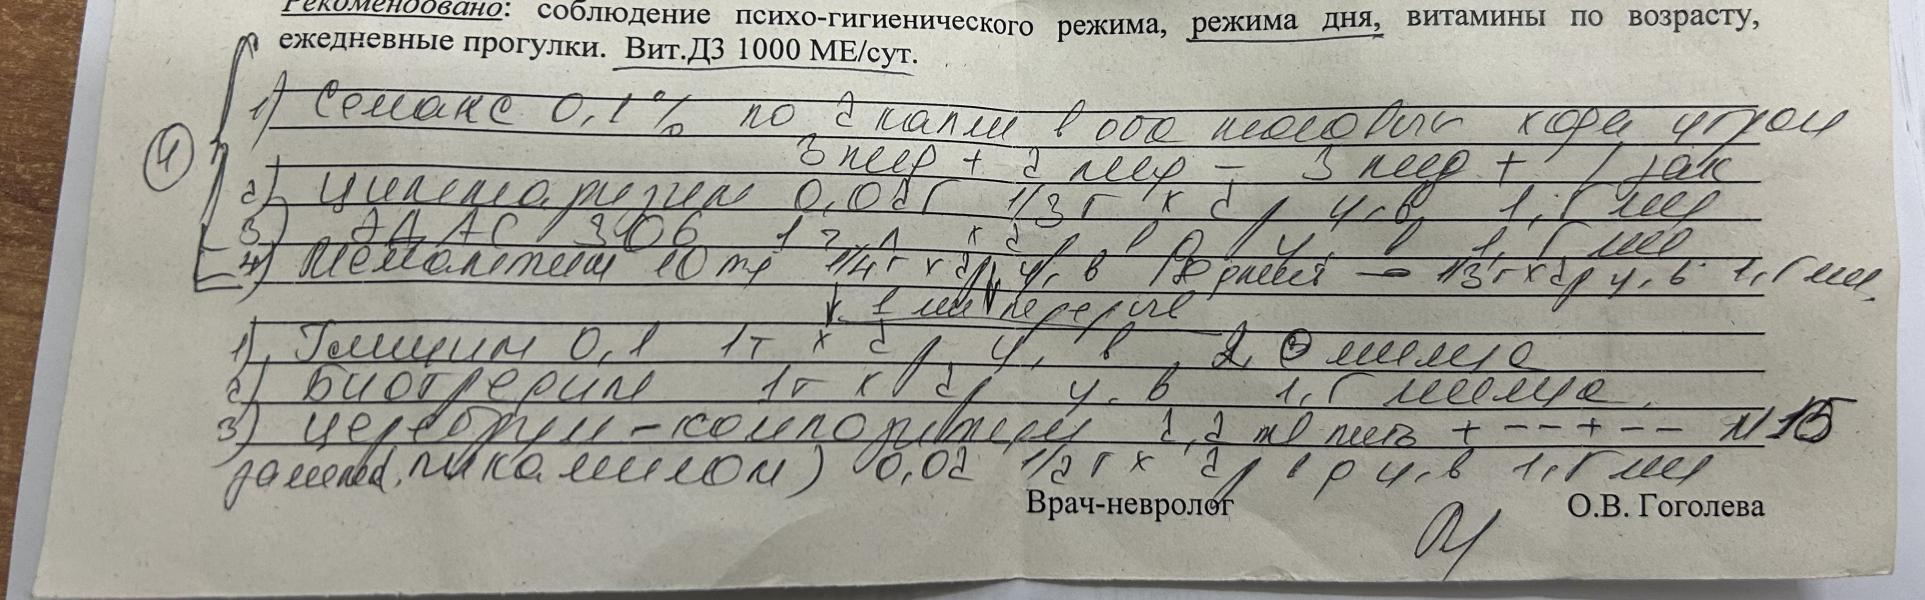 Рекомендовано: соблюдение психо-гигиенического режима, режима дня, витамины по возрасту,
ежедневные прогулки. Вит.Д3 1000 МЕ/сут.
1) Семакс 0,1% по 2 капли в оба носовых хода утром
3 нед + 2 нед - 3 нед + 1
4
2) циннаризин 0,02 г 1/3 т х 2 р у,в 1,5 мес
3) ЭДАС 306 х 2 р в д у, в 1,5 мес
4) Мемантин 10 мг 1/4 т х 2 р у, в 10 дней - 1/3 т х 2 р у, в 1,5 мес.
1 мес перерыв
1) Глицин 0,1 1т х 2 р у, в 2 месяца
2) Биотредин 1т х 2 р у. в 1,5 месяца.
3) церебрум-композитум 2,2 мл пить + - - + - - N 15
пикамилон) 0,02 1/2 т х 2 р в д у,в 1,5 мес
Врач-невролог О.В. Гоголева